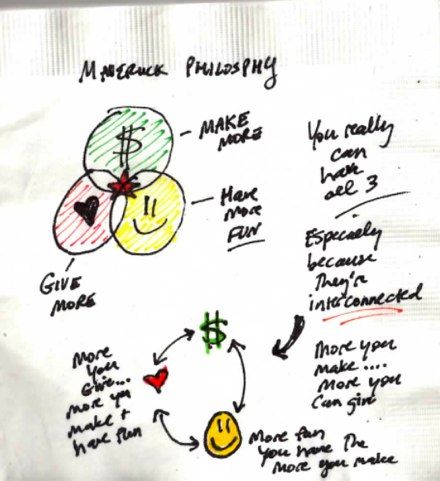 MAVERICK PHILOSPHY
$
MAKE
MORE
Have
more
FUN
GIVE
MORE
You really
can
have
all 3
Especially
because
They're
interconnected
More you
make ....
More you
Can give
$
More
you
Give...
more you
make +
have fun
More fun
you have The
more you make